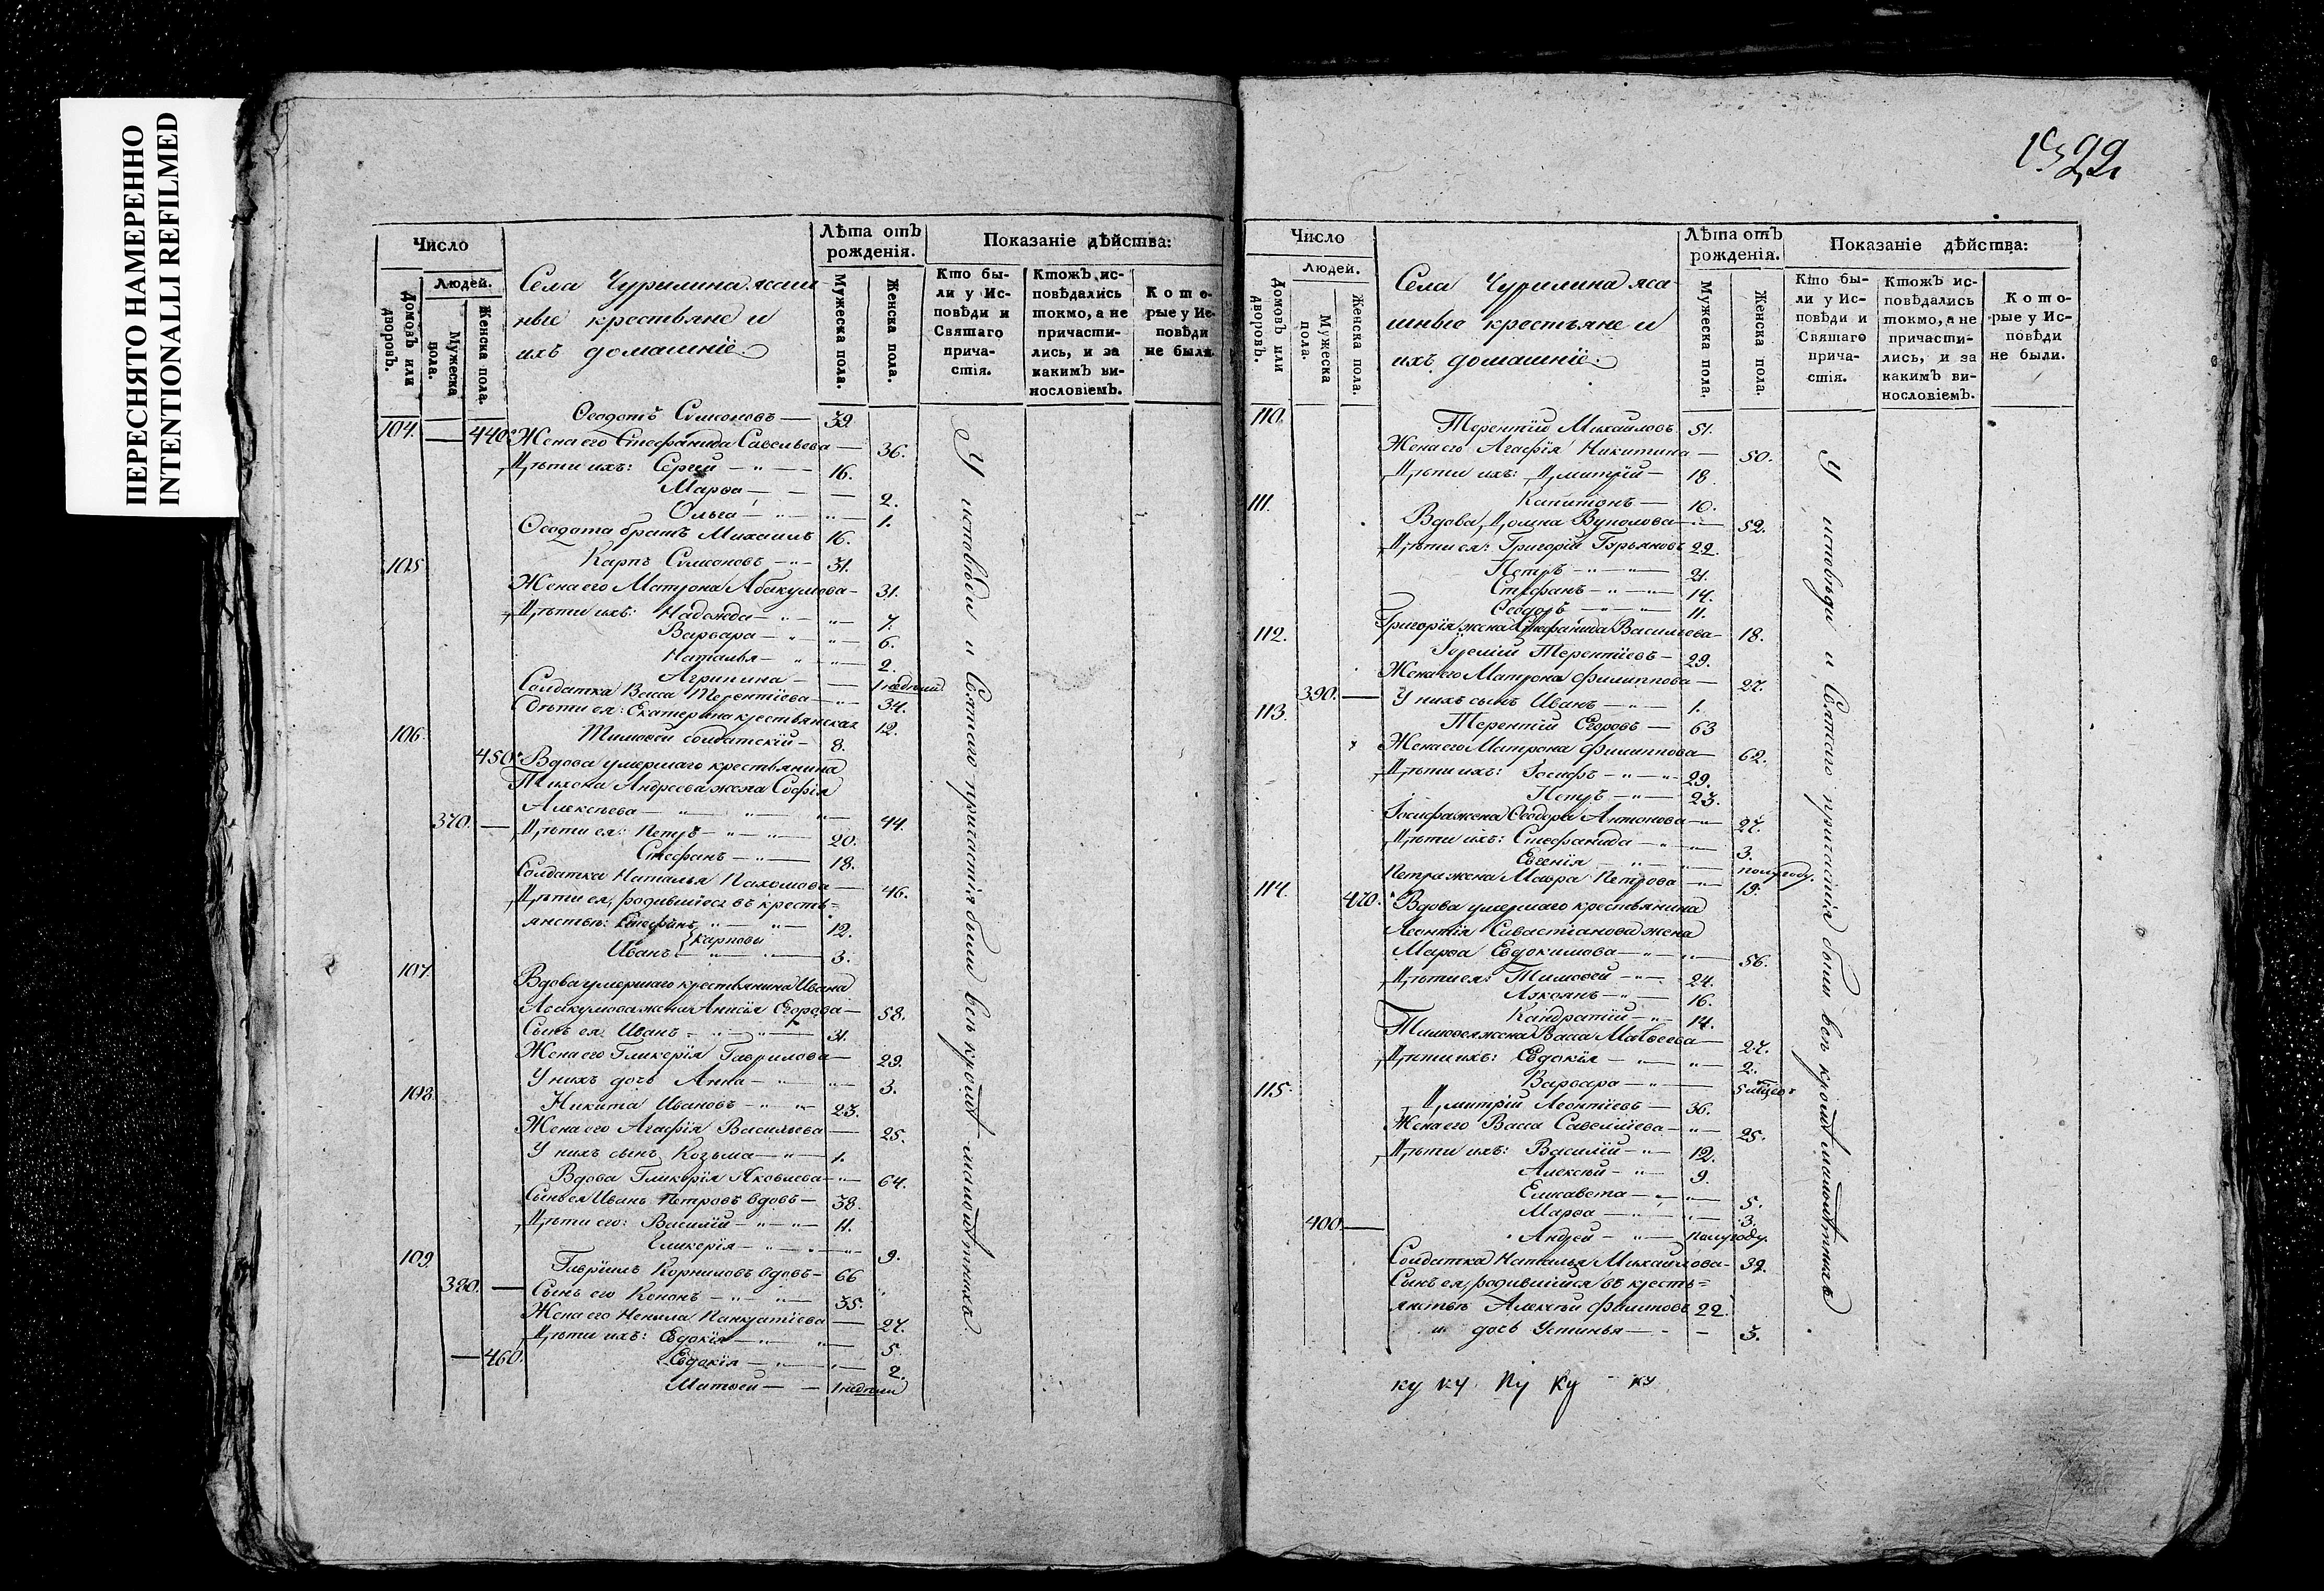 ПЕРЕСНЯТО НАМЕРЕННО
INTENTIONALLI REFILMED
Число
Людей.
Домовъ или дворовъ.
Мужеска пола.
Женска пола.
Села Чурилина ясаш
ные крестьяне и
ихъ домашніе.
Лѣта отъ рожденія.
Мужеска пола.
Женска пола.
Показаніе дѣйства:
Кто бы-
ли у Ис-
повѣди и
Святаго
прича-
стія.
Ктожъ ис-
повѣдались
токмо, а не
причасти-
лись, и за
какимъ ви-
нословіемъ.
Кото-
рые у Ис-
повѣди
не были.
104. Ѳеодотъ Симоновъ — 39.
440. Жена его Стефанида Савельева — 36.
Дѣти ихъ: Сергій — 16.
Марѳа — 2.
Ольга — 1.
Ѳеодота братъ Михаилъ 16.
105 Карпъ Симоновъ — 31.
Жена его Матрона Абакумова — 31.
Дѣти ихъ: Надежда — 7.
Варвара — 6.
Наталья — 2.
Агрипина — 1 недѣли
Солдатка Васса Терентіева — 34.
Дѣти ея: Екатерина крестьянская 12.
106. Тимоѳей солдатскій — 8.
450. Вдова умершаго крестьянина
Тихона Андреева жена Софія
Алексѣева — 44.
370. — Дѣти ея: Петръ — 20.
Стефанъ — 18.
Солдатка Наталья Пахомова — 46.
Дѣти ея, родившіеся въ кресть=
янствѣ: Стефанъ — 12.
Карповы
Иванъ — 3.
107. Вдова умершаго крестьянина Ивана
Абакумова жена Анисія Егорова — 58.
Сынъ ея: Иванъ — 31.
Жена его Гликерія Гаврилова — 29.
У нихъ дочь Анна — 3.
108. Никита Ивановъ — 23.
Жена его Агафія Васильева — 25.
У нихъ сынъ Козьма — 1.
Вдова Гликерія Яковлева — 64.
Сынъ ея Иванъ Петровъ вдовъ — 38.
Дѣти его: Василій — 11.
Гликерія — 9.
109. Гавріилъ Корниловъ вдовъ — 66
380. — Сынъ его Кононъ — 35.
Жена его Ненила Панкратіева — 27.
Дѣти ихъ: Евдокія — 5
— 460. Евдокія — 2.
Матвей — 1 недѣли
У исповѣди и Святаго причастія были всѣ кромѣ малолѣтнихъ
99
Число
Людей.
Домовъ или дворовъ.
Мужеска пола.
Женска пола.
Села Чурилина яса
шные крестьяне и
ихъ домашніе.
Лѣта отъ рожденія.
Мужеска пола.
Женска пола.
Показаніе дѣйства:
Кто бы-
ли у Ис-
повѣди и
Святаго
прича-
стія.
Ктожъ ис-
повѣдались
токмо, а не
причасти-
лись, и за
какимъ ви-
нословіемъ.
Кото-
рые у Ис-
повѣди
не были.
110. Терентій Михайловъ 51.
Жена его Агафія Никитина — 50.
Дѣти ихъ: Дмитрій — 18.
Капитонъ — 10.
111. Вдова Домна Вуколова — 52.
Дѣти ея: Григорій Гурьяновъ 22.
Петръ — 21.
Стефанъ — 14.
Ѳеодоръ — 11.
Григорія жена Стефанида Васильева — 18.
112. Терентіевъ — 29.
Жена его Матрона Филиппова — 27.
390. — У нихъ сынъ Иванъ — 1.
113. Терентій Егоровъ — 63
Жена его Матрона Филиппова — 62.
Дѣти ихъ: Іосифъ — 29.
Петръ — 23.
Іосифа жена Ѳеодора Антонова — 27.
Дѣти ихъ: Стефанида — 3.
Евгенія — полугоду.
Петра жена Мавра Петрова — 19.
114. 470. Вдова умершаго крестьянина
Леонтія Савастіанова жена
Марѳа Евдокимова — 56.
Дѣти ея: Тимоѳей — 24.
16.
Кандратій — 14.
Тимоѳея жена Васса Матвеева — 27.
Дѣти ихъ: Евдокія — 2.
Варвара — 5 мцовъ
115. Дмитрій Леонтіевъ — 36.
Жена его Васса Савеліева — 25.
Дѣти ихъ: Василій — 12.
Алексѣй — 9.
Елисавета — 5.
Марѳа — 3.
400. — Андрей — полугоду.
Солдатка Наталья Михайлова — 39.
Сынъ ея, родившійся въ кресть=
янствѣ Алексѣй Филиповъ 22.
и дочь Устинья — 3.
У исповѣди и Святаго причастія были всѣ кромѣ малолѣтнихъ
ку ку ку ку ку